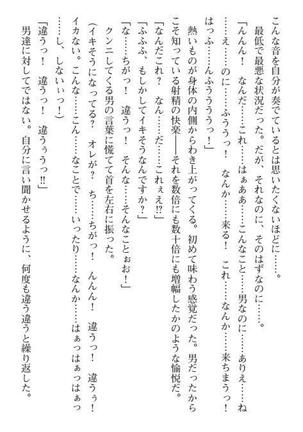 こんな音を自分が奏でているとは思いたくないほどに……。
最低で最悪な状況だった。だが、それなのに、そのはずなのに……。
「んんん！　なんだ……これ……はぁああ……こんなこと……男なのに……ありえ……ね
……え……。のに……ふううっ！　なんか……来る！　これ……なんか……来ちまうっ！
はっふ……んふうううう！」
熱いものが身体の内側からわき上がってくる。初めて味わう感覚だった。男だったから
こそ知っている射精の快楽――それを数倍にも数十倍にも増幅したかのような愉悦だ。
「なんだこれ？　なん……だ……これぇ!?」
「ふふふ、もしかしてイキそうなんですか？」
「な……ちがっ！　違うっ！　そんな……そんなことぉお！」
クンニしてくる男の言葉に慌てて首を左右に振った。
（イキそうになってる？　オレが？　ち……ちがっ！　んんん！　違うっ！　違うぅ！
イカない。こんな……こん……なことで……いったり……なんか……はぁっはぁっはぁっ
……し、しないぃっ！）
「違うっ！　違うっ！　違ううっ!!」
男達に対してではない。自分に言い聞かせるように、何度も違う違うと繰り返した。